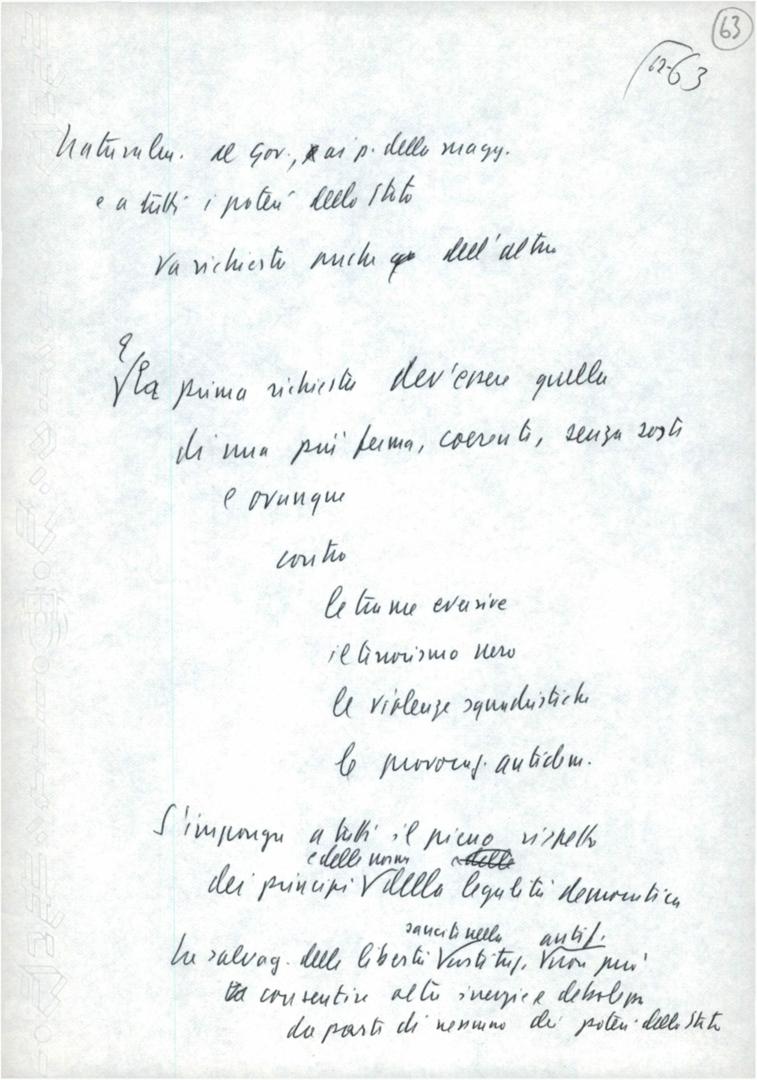 63
12-63
Naturalm. al gov., ai p. della mag.
e a tutti i poteri dello Stato
va richiesto anche dell'altro
La prima richiesta dev'essere quella
di una più ferma, coerente, senza soste
e ovunque
contro
le trame eversive
il terrorismo nero
le violenze squadristiche
le provocaz. antidem.
S'imponga a tutti il pieno rispetto
e delle norme
dei principi della legalità democratica
sancite nella antif.
La salvag. delle libertà costituz. non può
consentire altre inerzie e debolezze
da parte di nessuno dei poteri dello Stato